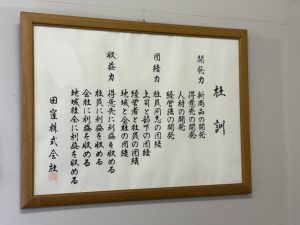 社訓
開発力
新商品の開発
得意先の開発
人材の開発
経営法の開発
団結力
社員同志の団結
上司と部下の団結
経営者と社員の団結
地域と会社の団結
収益力
得意先に利益を収める
社員に利益を収める
会社に利益を収める
地域社会に利益を収める
田窪株式会社